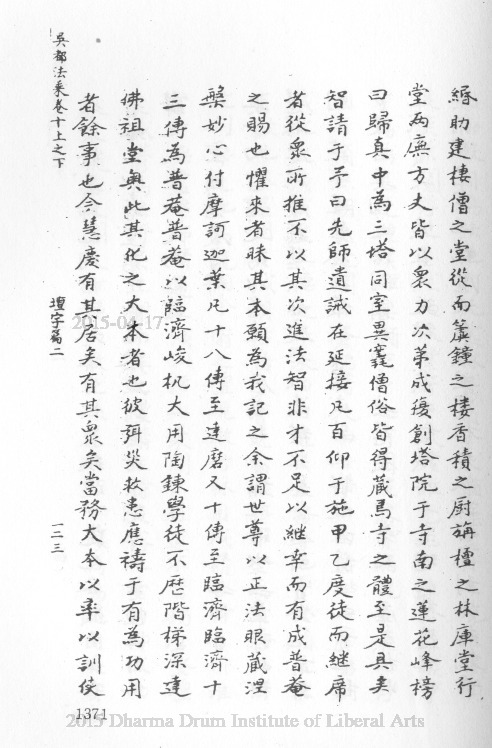 緡助建棲僧之堂從而簴鐘之樓香積之厨旃檀之林庫堂行
堂兩廡方丈皆以衆力次第成復創塔院于寺南之蓮花峰榜
曰歸真中為三塔同室異窆僧俗皆得藏焉寺之體至是具矣
智請于予曰先師遺誡在延接凡百仰于施甲乙度徒而繼席
者從衆所推不以其次進法智非才不足以繼幸而有成普菴
之賜也懼來者昧其本願為我記之余謂世尊以正法眼藏涅
槃妙心付摩訶迦葉凡十八傳至達磨又十傳至臨濟臨濟十
三傳為普菴普菴以臨濟峻机大用陶鍊學徒不歷階梯深達
佛祖堂奥此其化之大本者也彼弭災救患應禱于有為功用
者餘事也今慧慶有其居矣有其衆矣當務大本以率以訓使
吳都法乘卷十上之下
壇字篇二
一二三
1371
2015-04-17
2015 Dharma Drum Institute of Liberal Arts